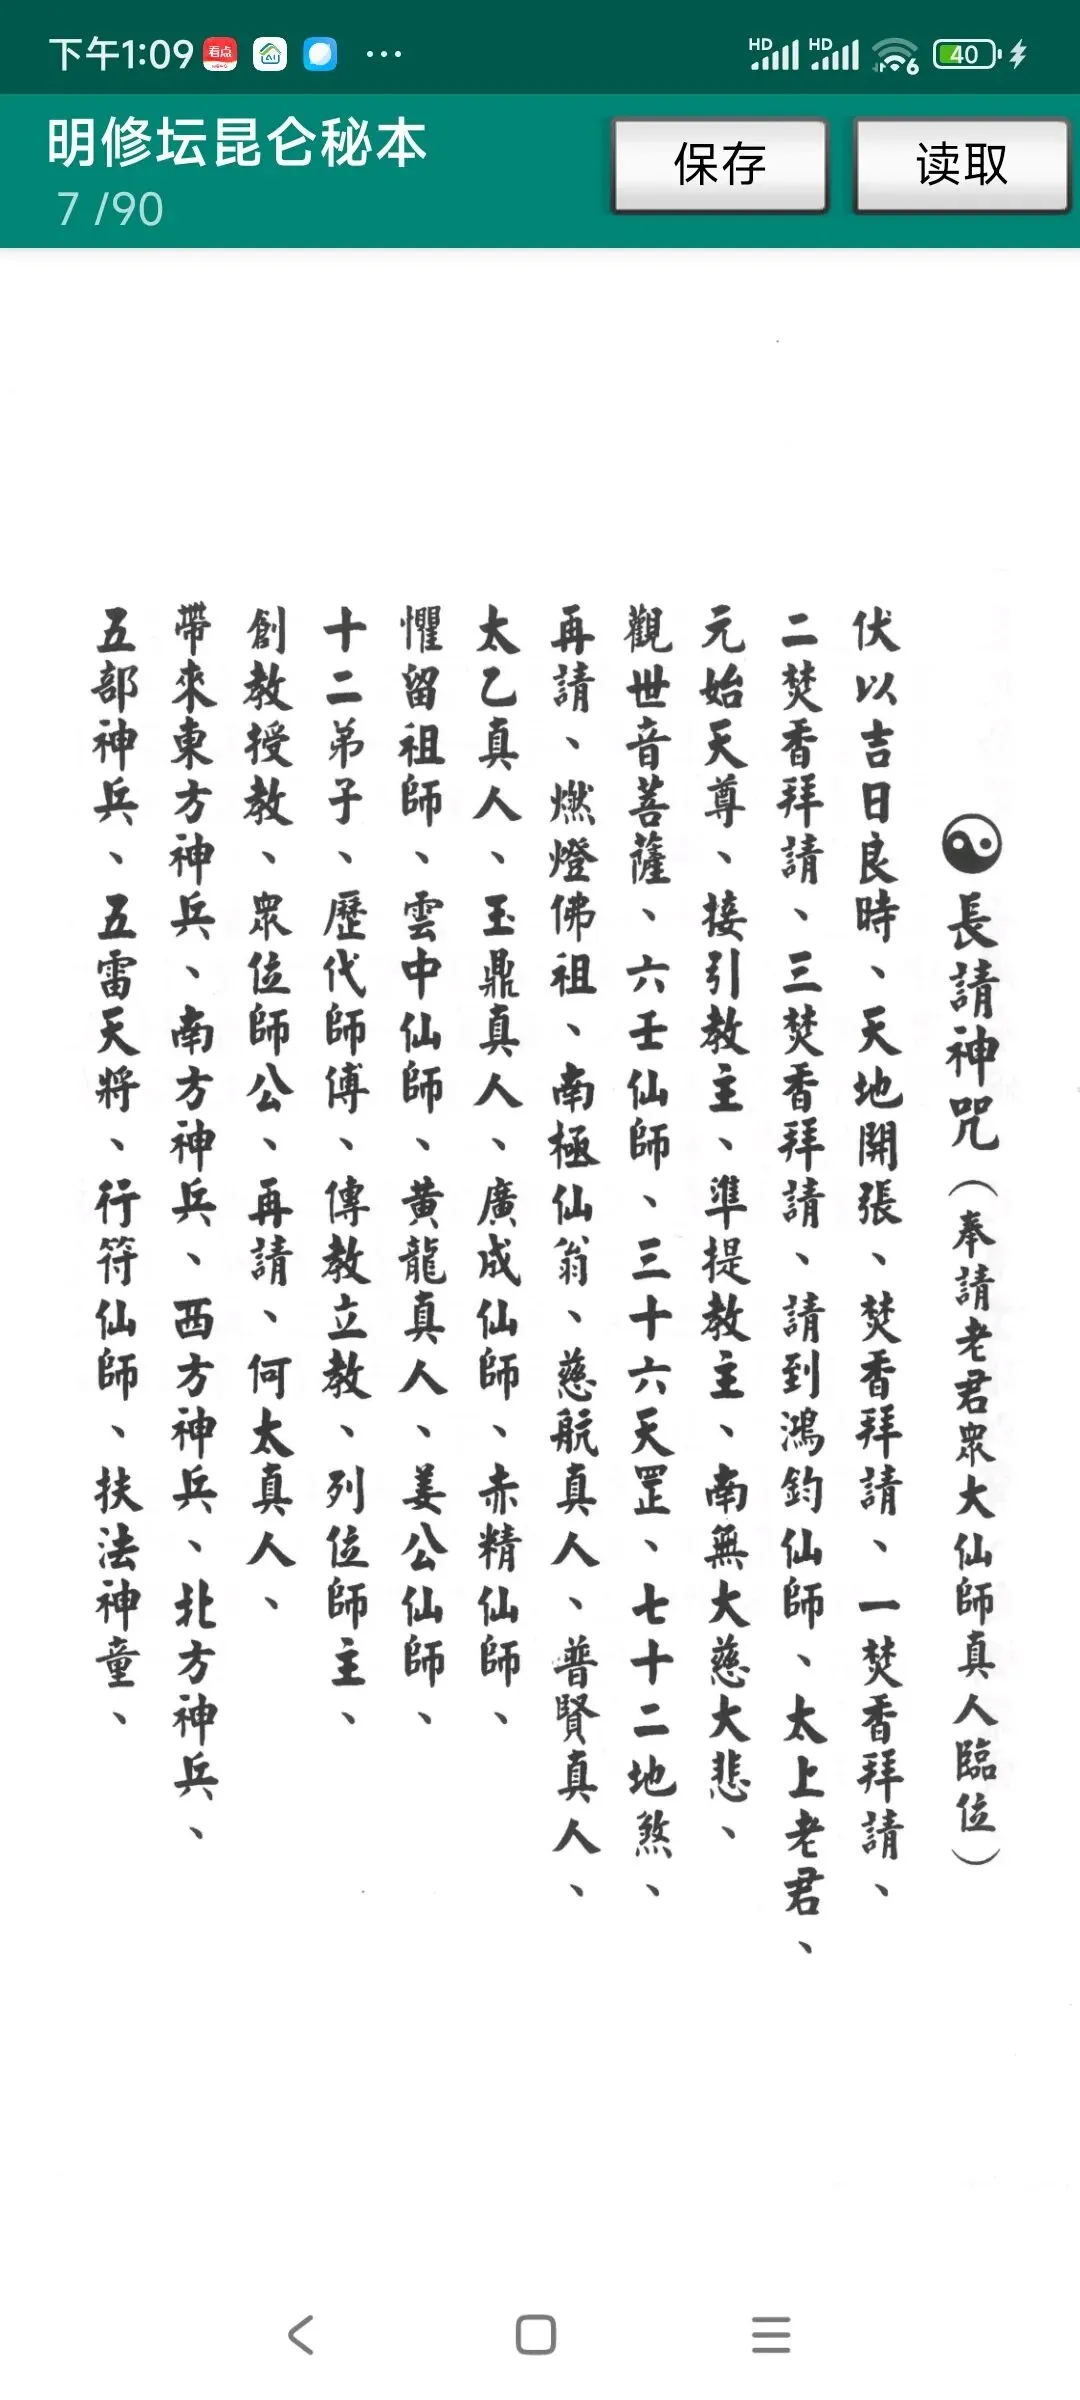 下午1:09
看点
AI
HD
HD
6
40
明修坛昆仑秘本
7 /90
保存
读取
長請神咒（奉請老君眾大仙師真人臨位）
伏以吉日良時、天地開張、焚香拜請、一焚香拜請、
二焚香拜請、三焚香拜請、請到鴻鈞仙師、太上老君、
元始天尊、接引教主、準提教主、南無大慈大悲、
觀世音菩薩、六壬仙師、三十六天罡、七十二地煞、
再請、燃燈佛祖、南極仙翁、慈航真人、普賢真人、
太乙真人、玉鼎真人、廣成仙師、赤精仙師、
懼留祖師、雲中仙師、黃龍真人、姜公仙師、
十二弟子、歷代師傅、傳教立教、列位師主、
創教授教、眾位師公、再請、何太真人、
帶來東方神兵、南方神兵、西方神兵、北方神兵、
五部神兵、五雷天將、行符仙師、扶法神童、